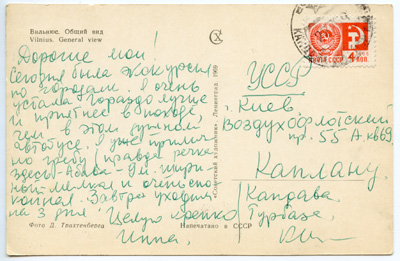 Вильнюс. Общий вид
Vilnius. General view
Дорогие мои!
Сегодня была экскурсия
по городам. Я очень
устала. Гораздо лучше
и приятнее в походе,
чем в этом душном
автобусе. Уже прилично
гребу (правда речка
здесь
ной мелкая и очень спо-
койная. Завтра уходим
на 3 дня. Целую крепко
Инна.
Фото Д. Трахтенберга
Напечатано в СССР
«Советский художник». Ленинград 1969
ПОЧТА СССР
4 КОП.
УССР
г. Киев
Воздухофлотский
пр. 55А кв69
Каплану.